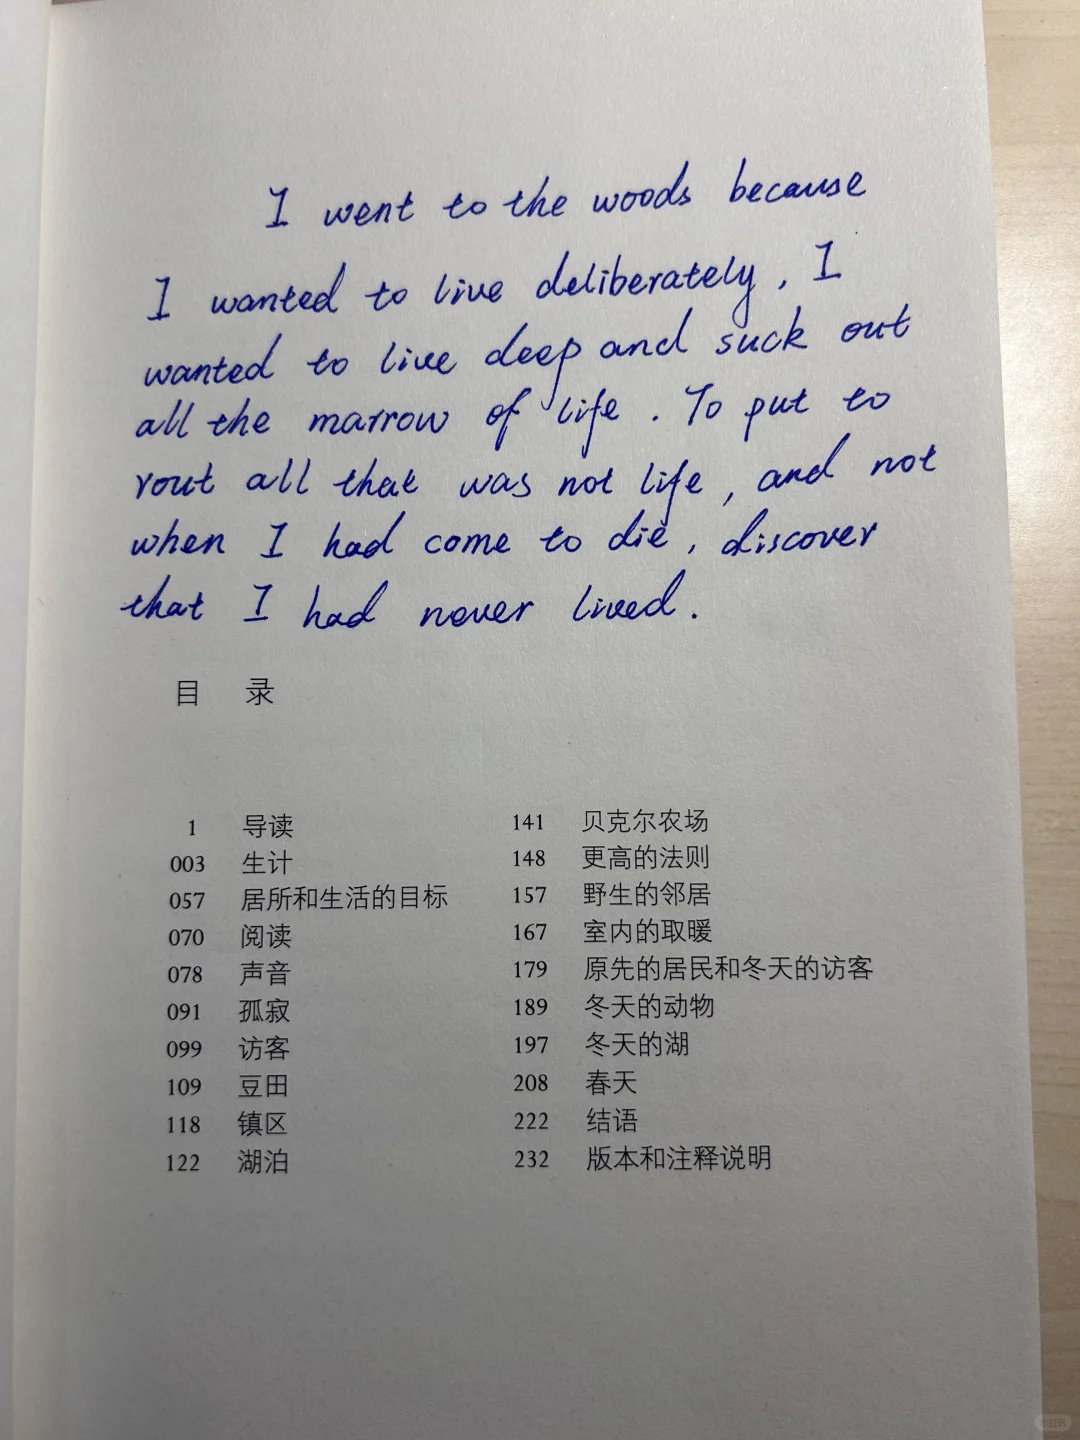 I went to the woods because
I wanted to live deliberately, I
wanted to live deep and suck out
all the marrow of life. To put to
rout all that was not life, and not
when I had come to die, discover
that I had never lived.
目 录
1 导读
003 生计
057 居所和生活的目标
070 阅读
078 声音
091 孤寂
099 访客
109 豆田
118 镇区
122 湖泊
141 贝克尔农场
148 更高的法则
157 野生的邻居
167 室内的取暖
179 原先的居民和冬天的访客
189 冬天的动物
197 冬天的湖
208 春天
222 结语
232 版本和注释说明